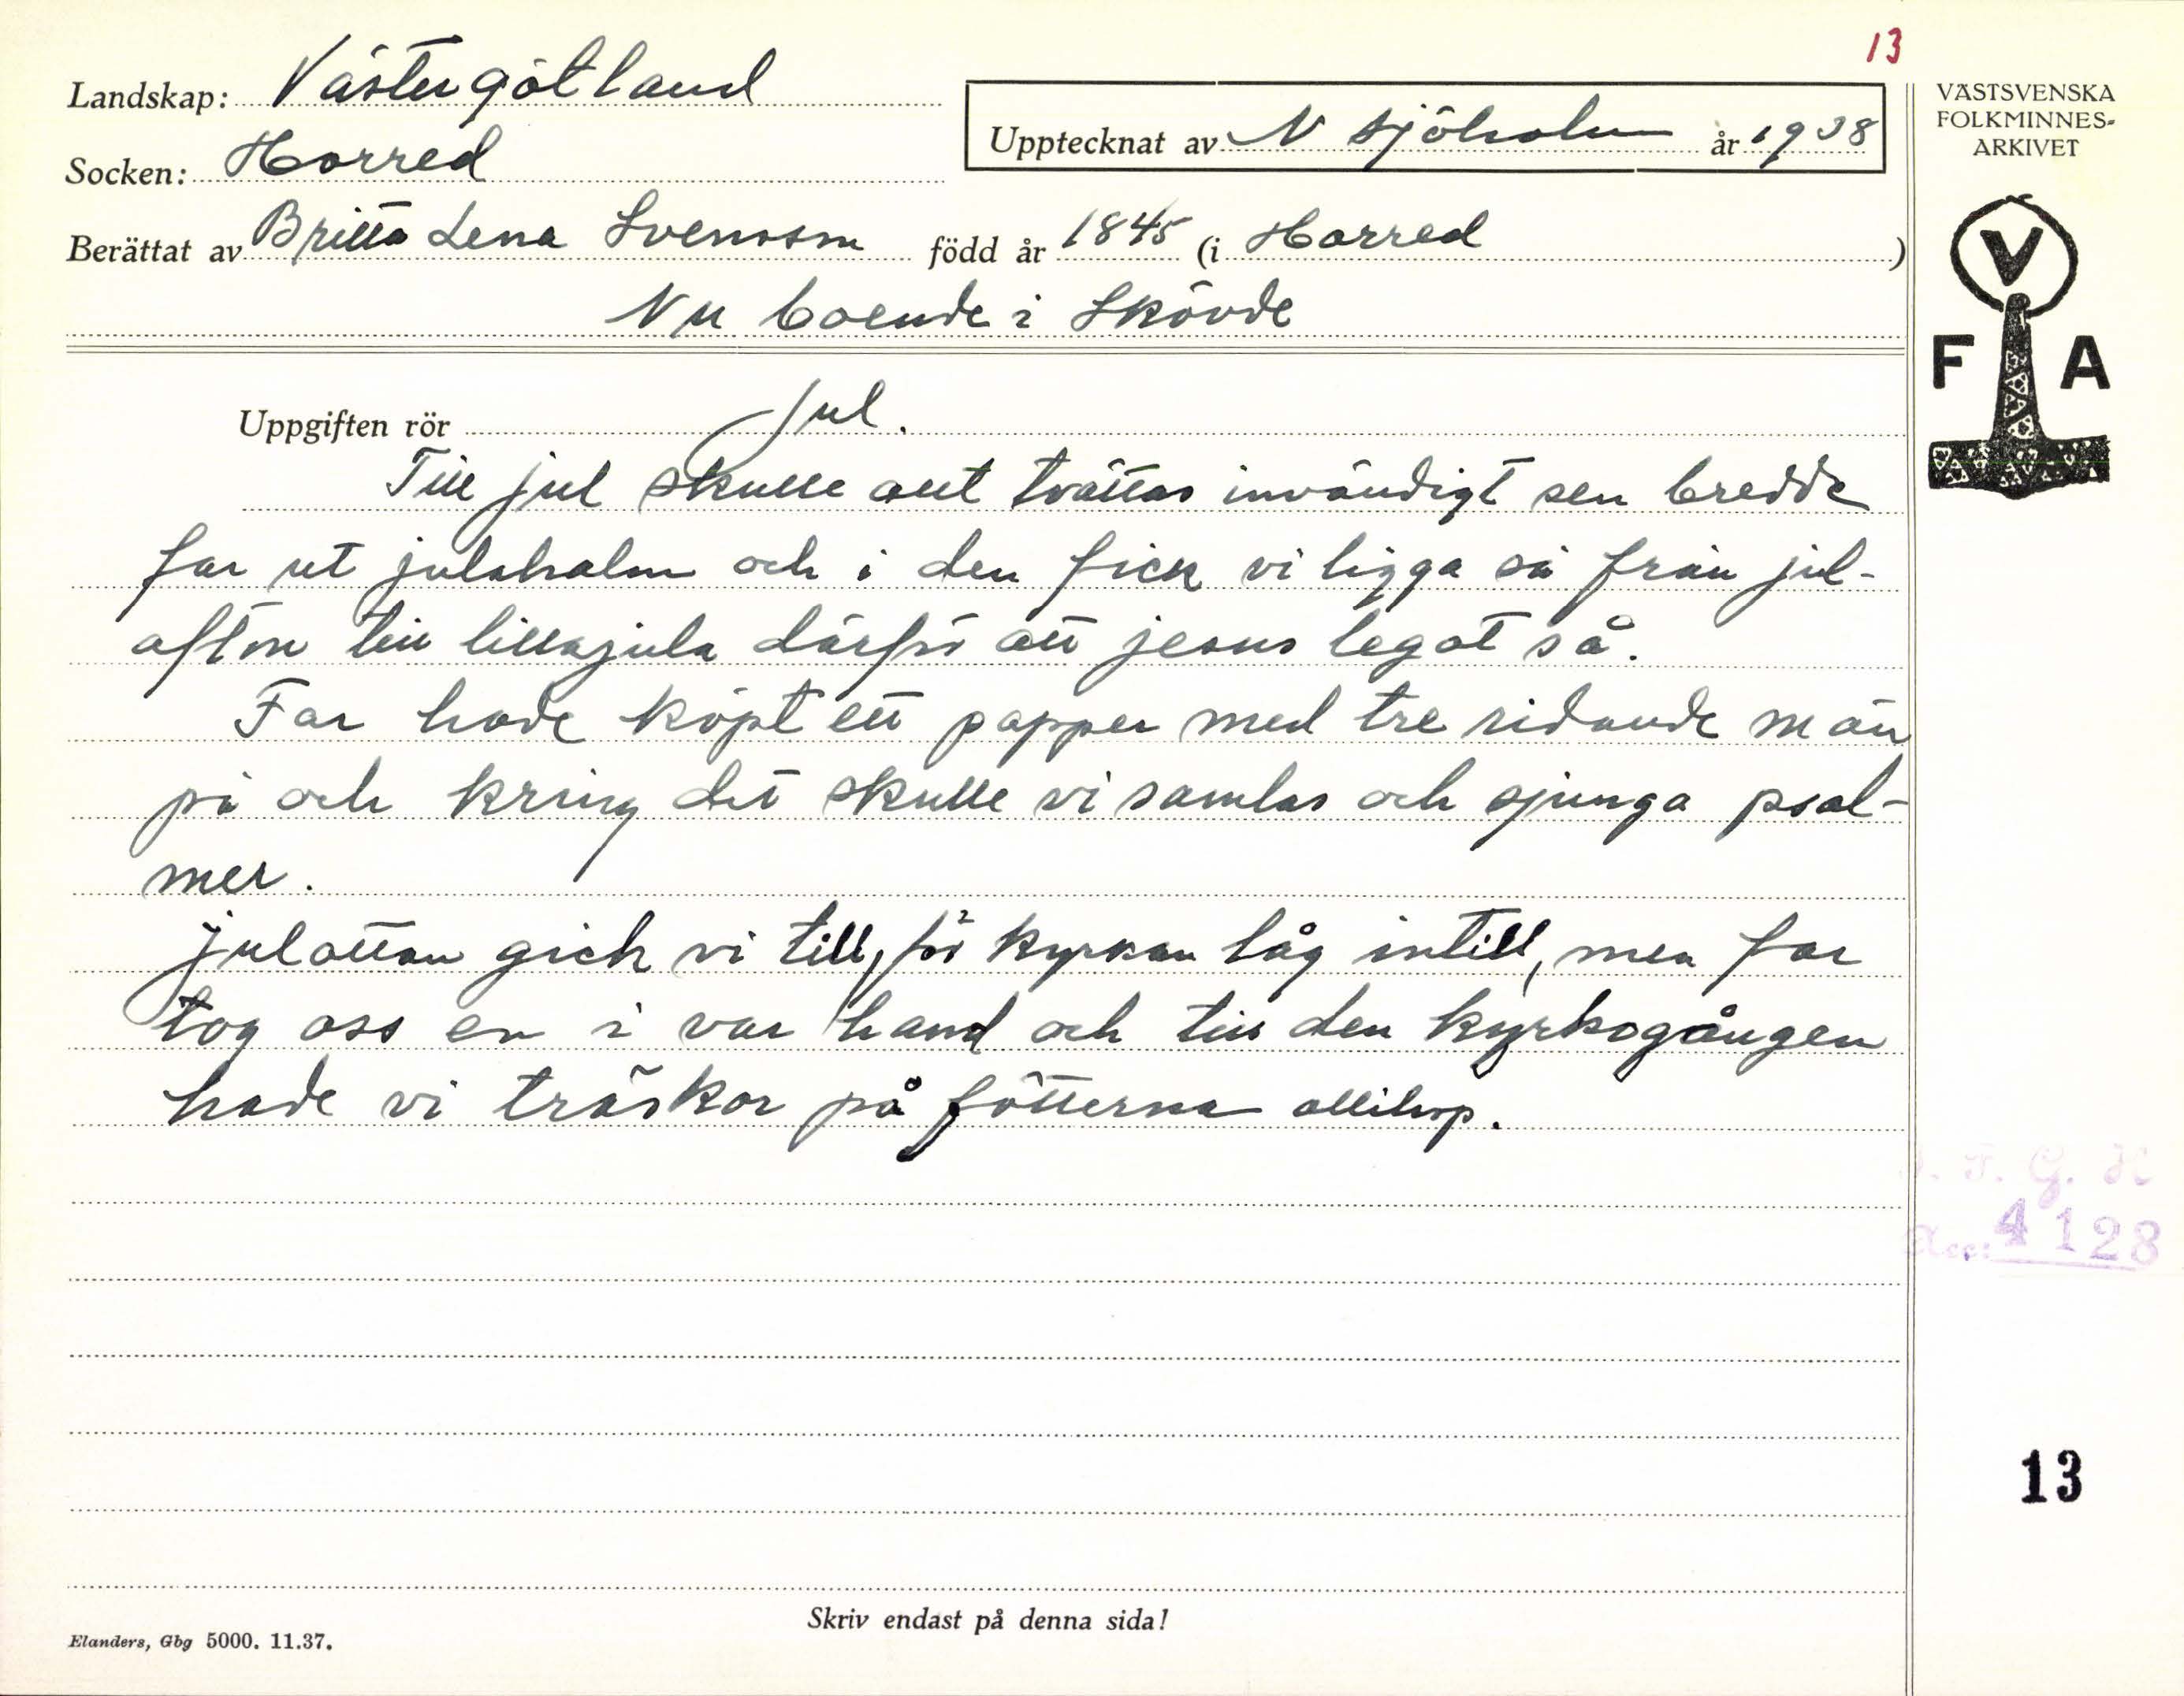 13
Landskap: Västergötland
Socken: Horred
Upptecknat av N Sjöholm år 1938
Berättat av Britta Lena Svensson född år 1845 (i Horred)
Nu boende i Skövde
VÄSTSVENSKA
FOLKMINNES-
ARKIVET
V
F A
Uppgiften rör Jul.
Till jul skulle allt tvättas invändigt sen bredde
far ut julahalm och i den fick vi ligga så från jul-
afton till lillajula därför att jesus legat så.
Far hade köpt ett papper med tre ridande män
på och kring det skulle vi samlas och sjunga psal-
mer.
Julottan gick vi till, för kyrkan låg intill, men far
tog oss en i var hand och till den kyrkogången
hade vi träskor på fötterna allihop.
I. F. G. H
Acc: 4128
13
Skriv endast på denna sida!
Elanders, Gbg 5000. 11.37.